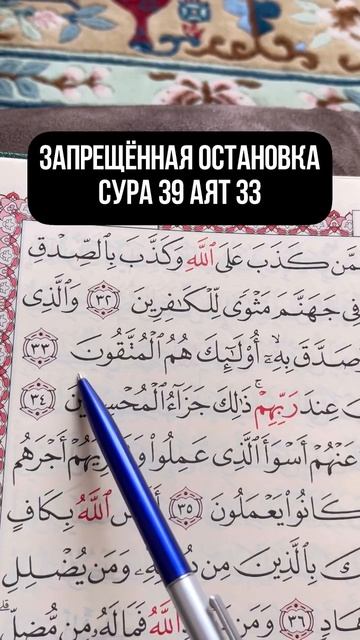 ЗАПРЕЩЁННАЯ ОСТАНОВКА
СУРА 39 АЯТ 33
مَّن كَذَبَ عَلَى ٱللَّهِ وَكَذَّبَ بِٱلصِّدْقِ
فِى جَهَنَّمَ مَثْوًى لِّلْكَٰفِرِينَ ٣٢ وَٱلَّذِى
صَدَّقَ بِهِۦٓ أُو۟لَٰٓئِكَ هُمُ ٱلْمُتَّقُونَ ٣٣
عِندَ رَبِّهِمْ ۚ ذَٰلِكَ جَزَآءُ ٱلْمُحْسِنِينَ ٣٤
عَنْهُمْ أَسْوَأَ ٱلَّذِى عَمِلُوا۟ أَجْرَهُم
كَانُوا۟ يَعْمَلُونَ ٣٥ ٱللَّهُ بِكَافٍ
بِٱلَّذِينَ مِن وَمَن يُضْلِلِ
٣٦ وَمَن ٱللَّهُ فَمَا لَهُۥ مِن مُّضِلٍّ